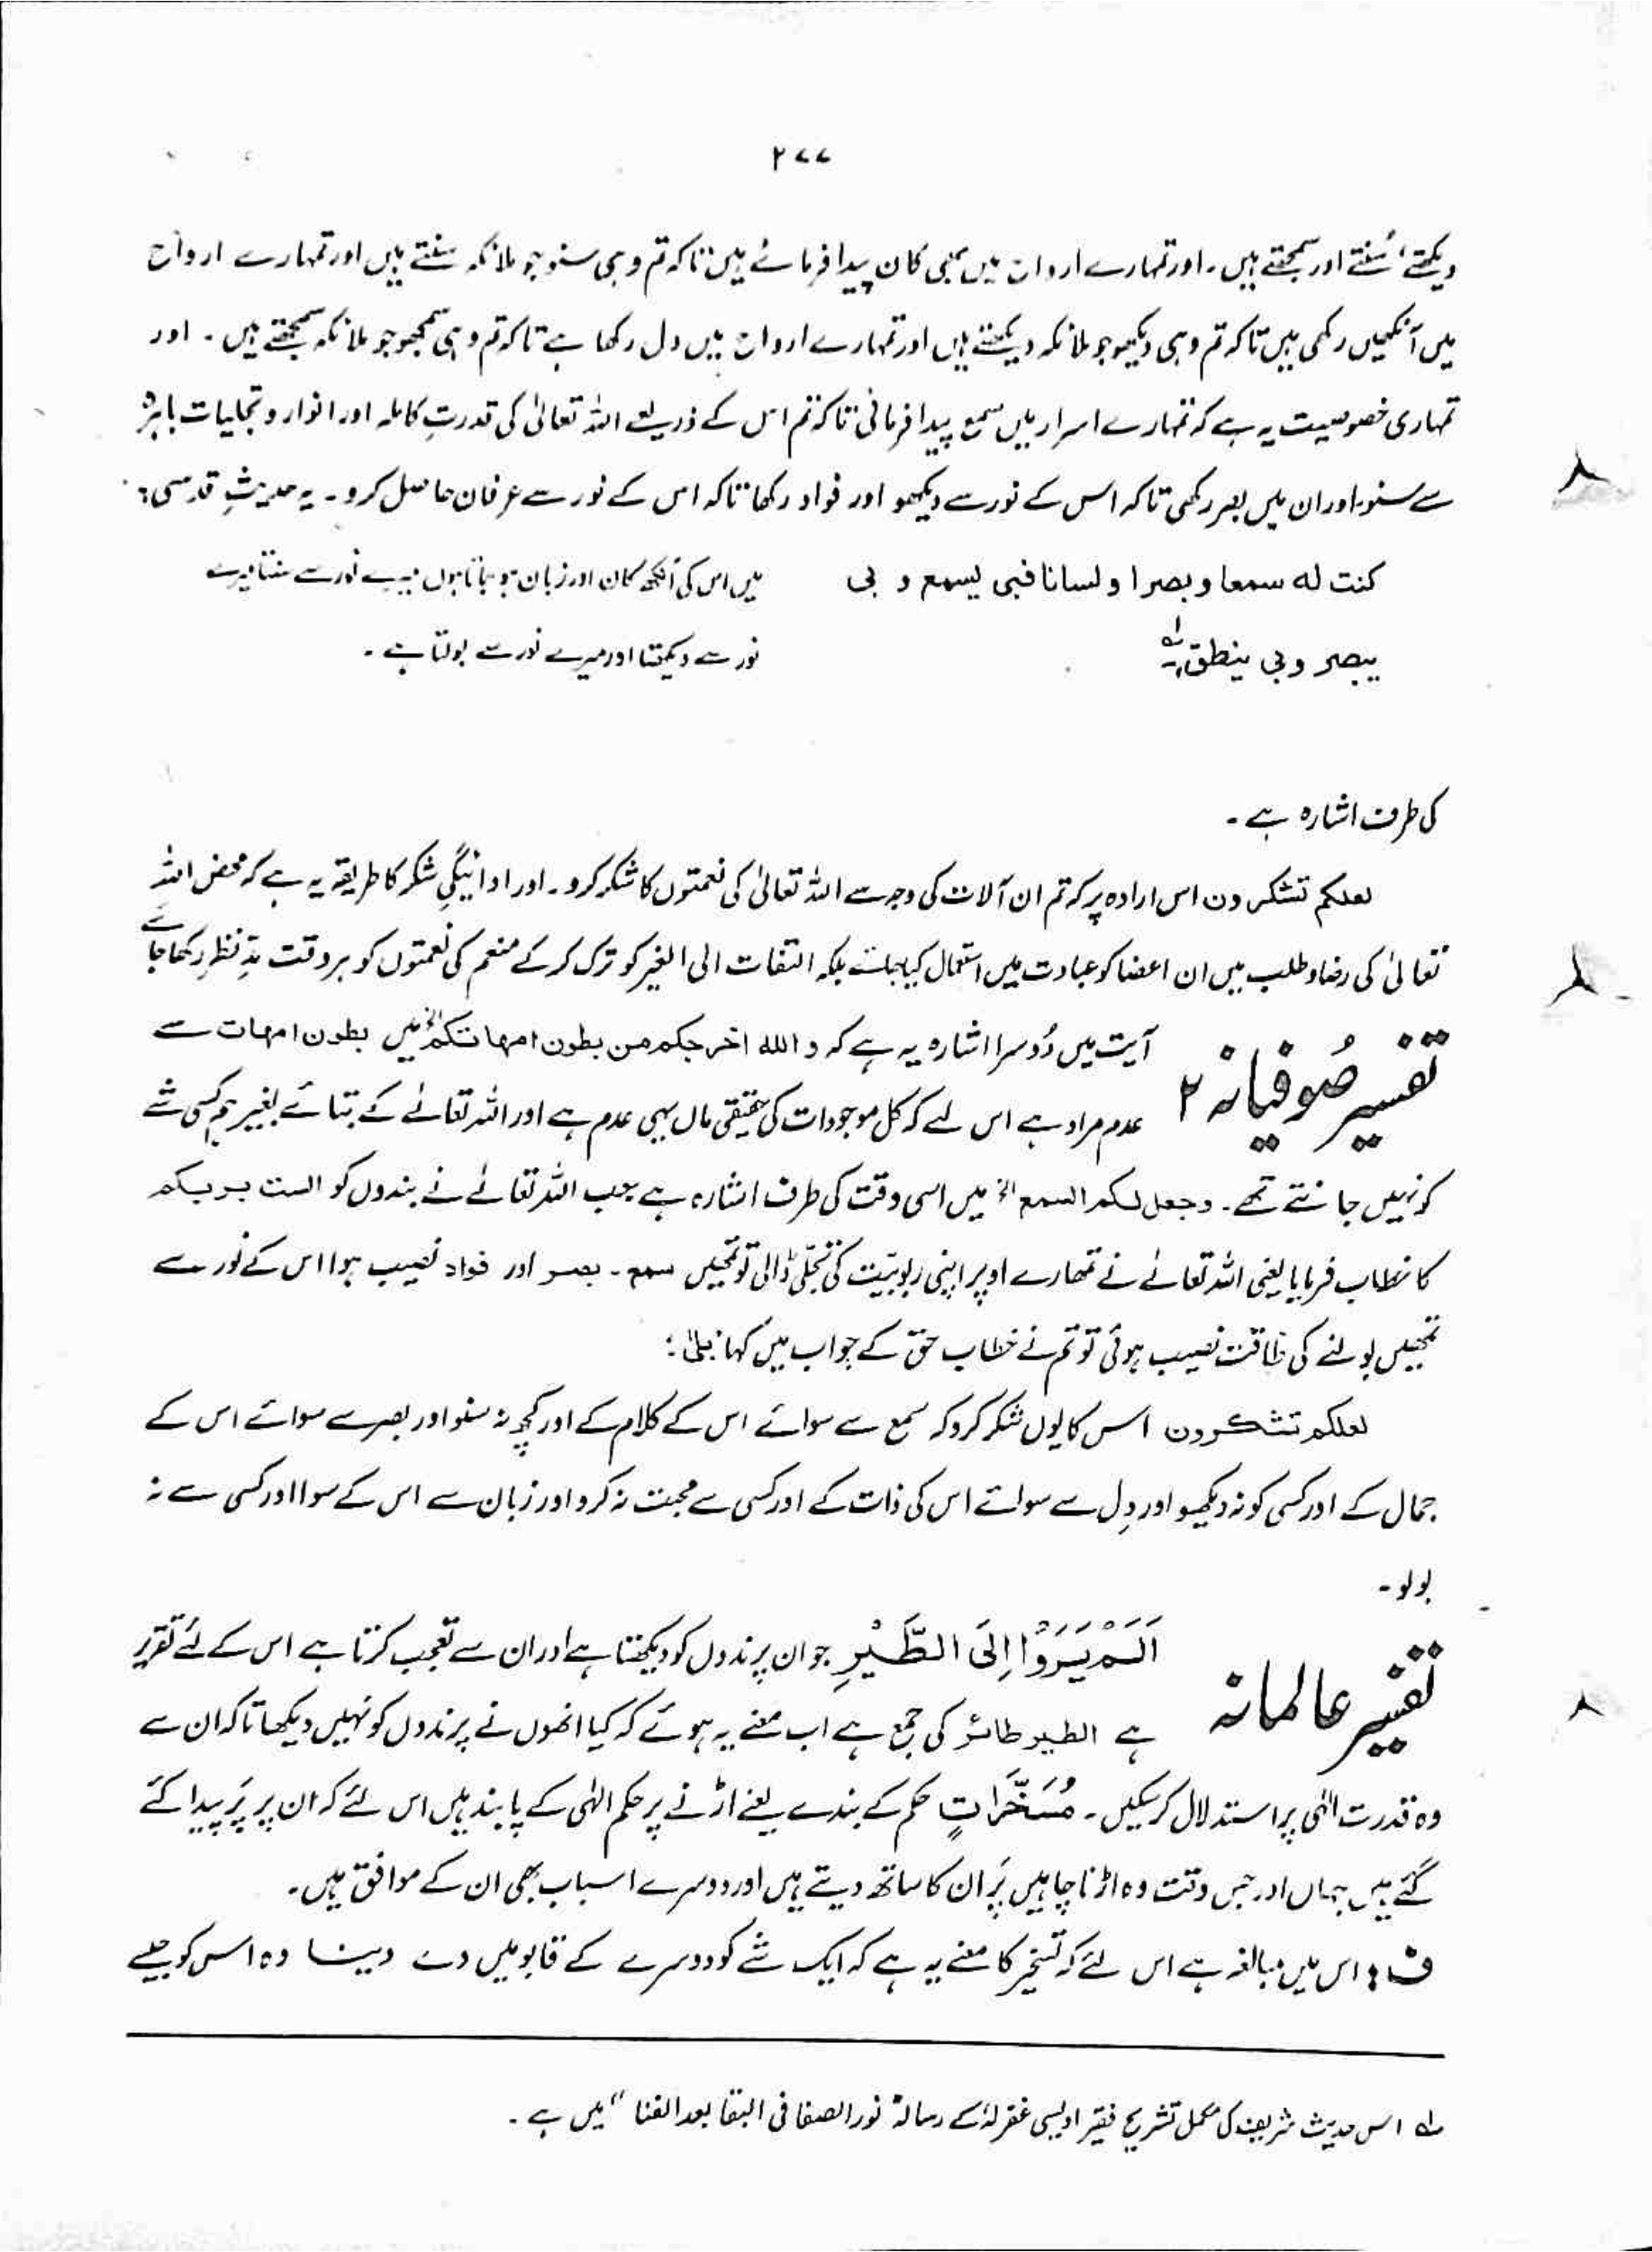 ۲۷۷
دیکھتے، سُنتے اور سمجھتے ہیں۔ اور تمہارے ارواح میں بھی کان پیدا فرمائے ہیں تاکہ تم وہی سنو جو ملائکہ سنتے ہیں اور تمہارے ارواح
میں آنکھیں رکھی ہیں تاکہ تم وہی دیکھو جو ملائکہ دیکھتے ہیں اور تمہارے ارواح میں دل رکھا ہے تاکہ تم وہی سمجھو جو ملائکہ سمجھتے ہیں۔ اور
تمہاری خصوصیت یہ ہے کہ تمہارے اسرار میں سمع پیدا فرمائی تاکہ تم اس کے ذریعے اللہ تعالیٰ کی قدرتِ کاملہ اور انوار و تجلیات باہرہ
سے سنو اور ان میں بصر رکھی تاکہ اس کے نور سے دیکھو اور فواد رکھا تاکہ اس کے نور سے عرفان حاصل کرو۔ یہ حدیثِ قدسی:
کنت له سمعا و بصرا و لسانا فبی یسمع و بی
یبصر و بی ینطق لہ
میں اس کی آنکھ کان اور زبان ہو جاتا ہوں میرے نور سے سنتا میرے
نور سے دیکھتا اور میرے نور سے بولتا ہے۔
کی طرف اشارہ ہے۔
لعلکم تشکرون اس ارادہ پر کہ تم ان آلات کی وجہ سے اللہ تعالیٰ کی نعمتوں کا شکر کرو۔ اور ادائیگیِ شکر کا طریقہ یہ ہے کہ محض اللہ
تعالیٰ کی رضا و طلب میں ان اعضا کو عبادت میں استعمال کیا جائے بلکہ التفات الی الغیر کو ترک کر کے منعم کی نعمتوں کو ہر وقت مدِّ نظر رکھا جائے
تفسیر صُوفیانہ ۲
آیت میں دُوسرا اشارہ یہ ہے کہ و الله اخرجکم من بطون امهاتکم الخ میں بطون امهات سے
عدم مراد ہے اس لئے کہ کل موجودات کی حقیقی ماں یہی عدم ہے اور اللہ تعالےٰ کے بتائے بغیر تم کسی شے
کو نہیں جانتے تھے۔ وجعل لکم السمع الخ میں اسی وقت کی طرف اشارہ ہے جب اللہ تعالےٰ نے بندوں کو الست بربکم
کا خطاب فرمایا یعنی اللہ تعالےٰ نے تمھارے اوپر اپنی ربوبیّت کی تجلّی ڈالی تو تمھیں سمع۔ بصر اور فواد نصیب ہوا اس کے نور سے
تمھیں بولنے کی طاقت نصیب ہوئی تو تم نے خطاب حق کے جواب میں کہا بلیٰ:
لعلکم تشکرون اس کا یوں شکر کرو کہ سمع سے سوائے اس کے کلام کے اور کچھ نہ سنو اور بصر سے سوائے اس کے
جمال کے اور کسی کو نہ دیکھو اور دِل سے سوائے اس کی ذات کے اور کسی سے محبت نہ کرو اور زبان سے اس کے سوا اور کسی سے نہ
بولو۔
تفسیر عالمانہ
اَلَمْ یَرَوْا اِلَی الطَّیْرِ جو ان پرندوں کو دیکھتا ہے اور ان سے تعجب کرتا ہے اس کے لئے تقریر
ہے الطیر طائر کی جمع ہے اب معنے یہ ہوئے کہ کیا انھوں نے پرندوں کو نہیں دیکھا تاکہ ان سے
وہ قدرت الٰہی پر استدلال کر سکیں۔ مُسَخَّرَاتٍ حکم کے بندے یعنے اڑنے پر حکم الٰہی کے پابند ہیں اس لئے کہ ان پر پَر پیدا کئے
گئے ہیں جہاں اور جس وقت وہ اڑنا چاہیں پَر ان کا ساتھ دیتے ہیں اور دوسرے اسباب بھی ان کے موافق ہیں۔
ف: اس میں مبالغہ ہے اس لئے کہ تسخیر کا معنے یہ ہے کہ ایک شے کو دوسرے کے قابو میں دے دینا وہ اس کو جیسے
لہ اس حدیث شریف کی مکمل تشریح فقیر اویسی غفرلہٗ کے رسالہ نور الصفا فی البقا بعد الفنا " میں ہے۔